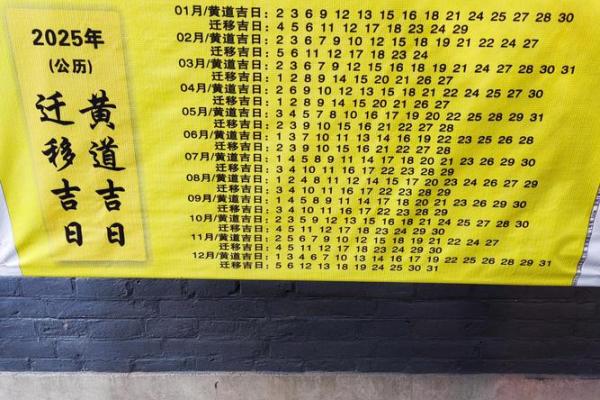 2025年
(公历)
黄道吉日
迁移吉日
01月/黄道吉日: 2 3 6 9 12 13 15 16 18 21 24 25 27 28 30
迁移吉日: 4 5 6 11 12 17 18 23 24 29
02月/黄道吉日: 2 3 6 7 9 10 12 15 18 19 21 22 24 27
迁移吉日: 5 6 11 12 17 18 23 24
03月/黄道吉日: 2 3 6 7 9 12 15 16 18 19 21 24 27 28 30 31
迁移吉日: 1 2 8 9 14 15 20 21 26 27
04月/黄道吉日: 2 6 9 10 12 13 15 18 21 22 24 25 27 30
迁移吉日: 1 2 8 9 14 15 20 21 26 27
05月/黄道吉日: 3 4 5 7 8 10 16 17 19 20 22 25 28 29 31
迁移吉日: 2 3 9 10 15 16 21 22 27 28
06月/黄道吉日: 1 3 7 10 11 13 14 16 19 22 23 25 26 28
迁移吉日: 2 3 9 10 15 16 21 22 27 28
07月/黄道吉日: 1 4 5 8 9 11 14 17 18 20 21 23 26 29 30
迁移吉日: 3 4 10 11 16 17 22 23 28 29
08月/黄道吉日: 1 2 4 8 11 12 14 15 17 20 23 24 26 27 29
迁移吉日: 3 4 10 11 16 17 22 23 28 29
09月/黄道吉日: 1 4 5 8 9 11 14 17 18 20 21 23 26 29 30
迁移吉日: 3 4 10 11 16 17 22 23 28 29
10月/黄道吉日: 2 3 5 9 12 13 15 16 18 21 24 25 27 28 30
迁移吉日: 4 5 11 12 17 18 23 24 29 30
11月/黄道吉日: 2 5 6 7 9 10 12 15 18 19 21 22 24 27
迁移吉日: 4 5 11 12 17 18 23 24 29 30
12月/黄道吉日: 1 3 4 6 7 10 13 14 16 17 19 22 25 26 28 29 31
迁移吉日: 5 6 12 13 18 19 24 25 30 31